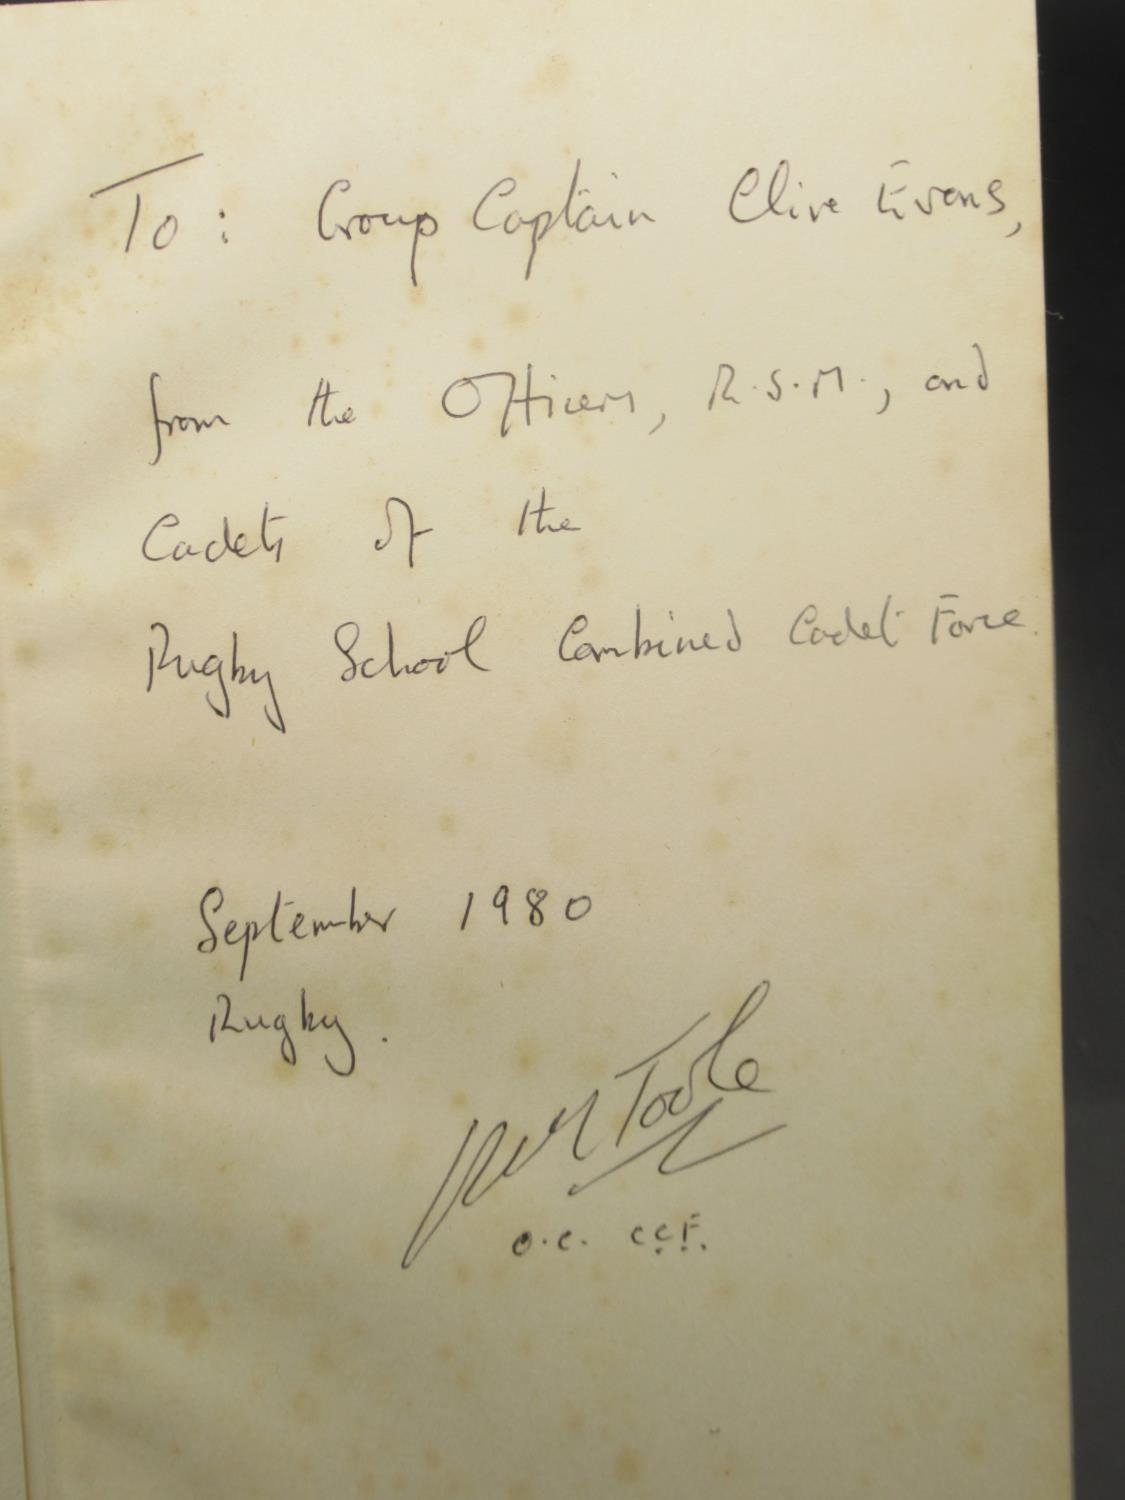 To: Group Captain Clive Evans,
from the Officers, R.S.M., and
Cadets of the
Rugby School Combined Cadet Force.
September 1980
Rugby.
Toole
O.C. C.C.F.